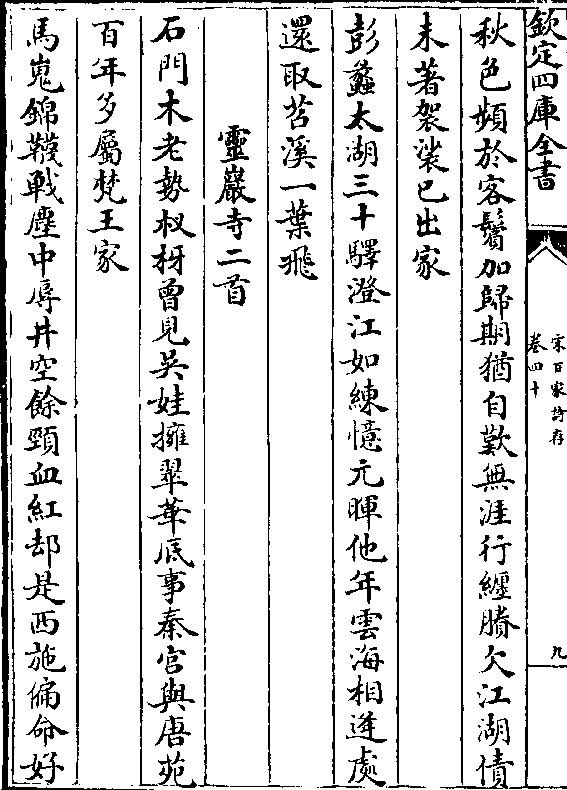 欽定四庫全書
宋百家詩存
卷四十
九
秋色頻於客鬢加歸期猶自歎無涯行纏賸欠江湖債
未著袈裟已出家
彭蠡太湖三十驛澄江如練憶元暉他年雲海相逢處
還取苕溪一葉飛
靈巖寺二首
石門木老勢杈枒曾見吳娃擁翠華底事秦宮與唐苑
百年多屬梵王家
馬嵬錦韈戰塵中辱井空餘頸血紅却是西施偏命好